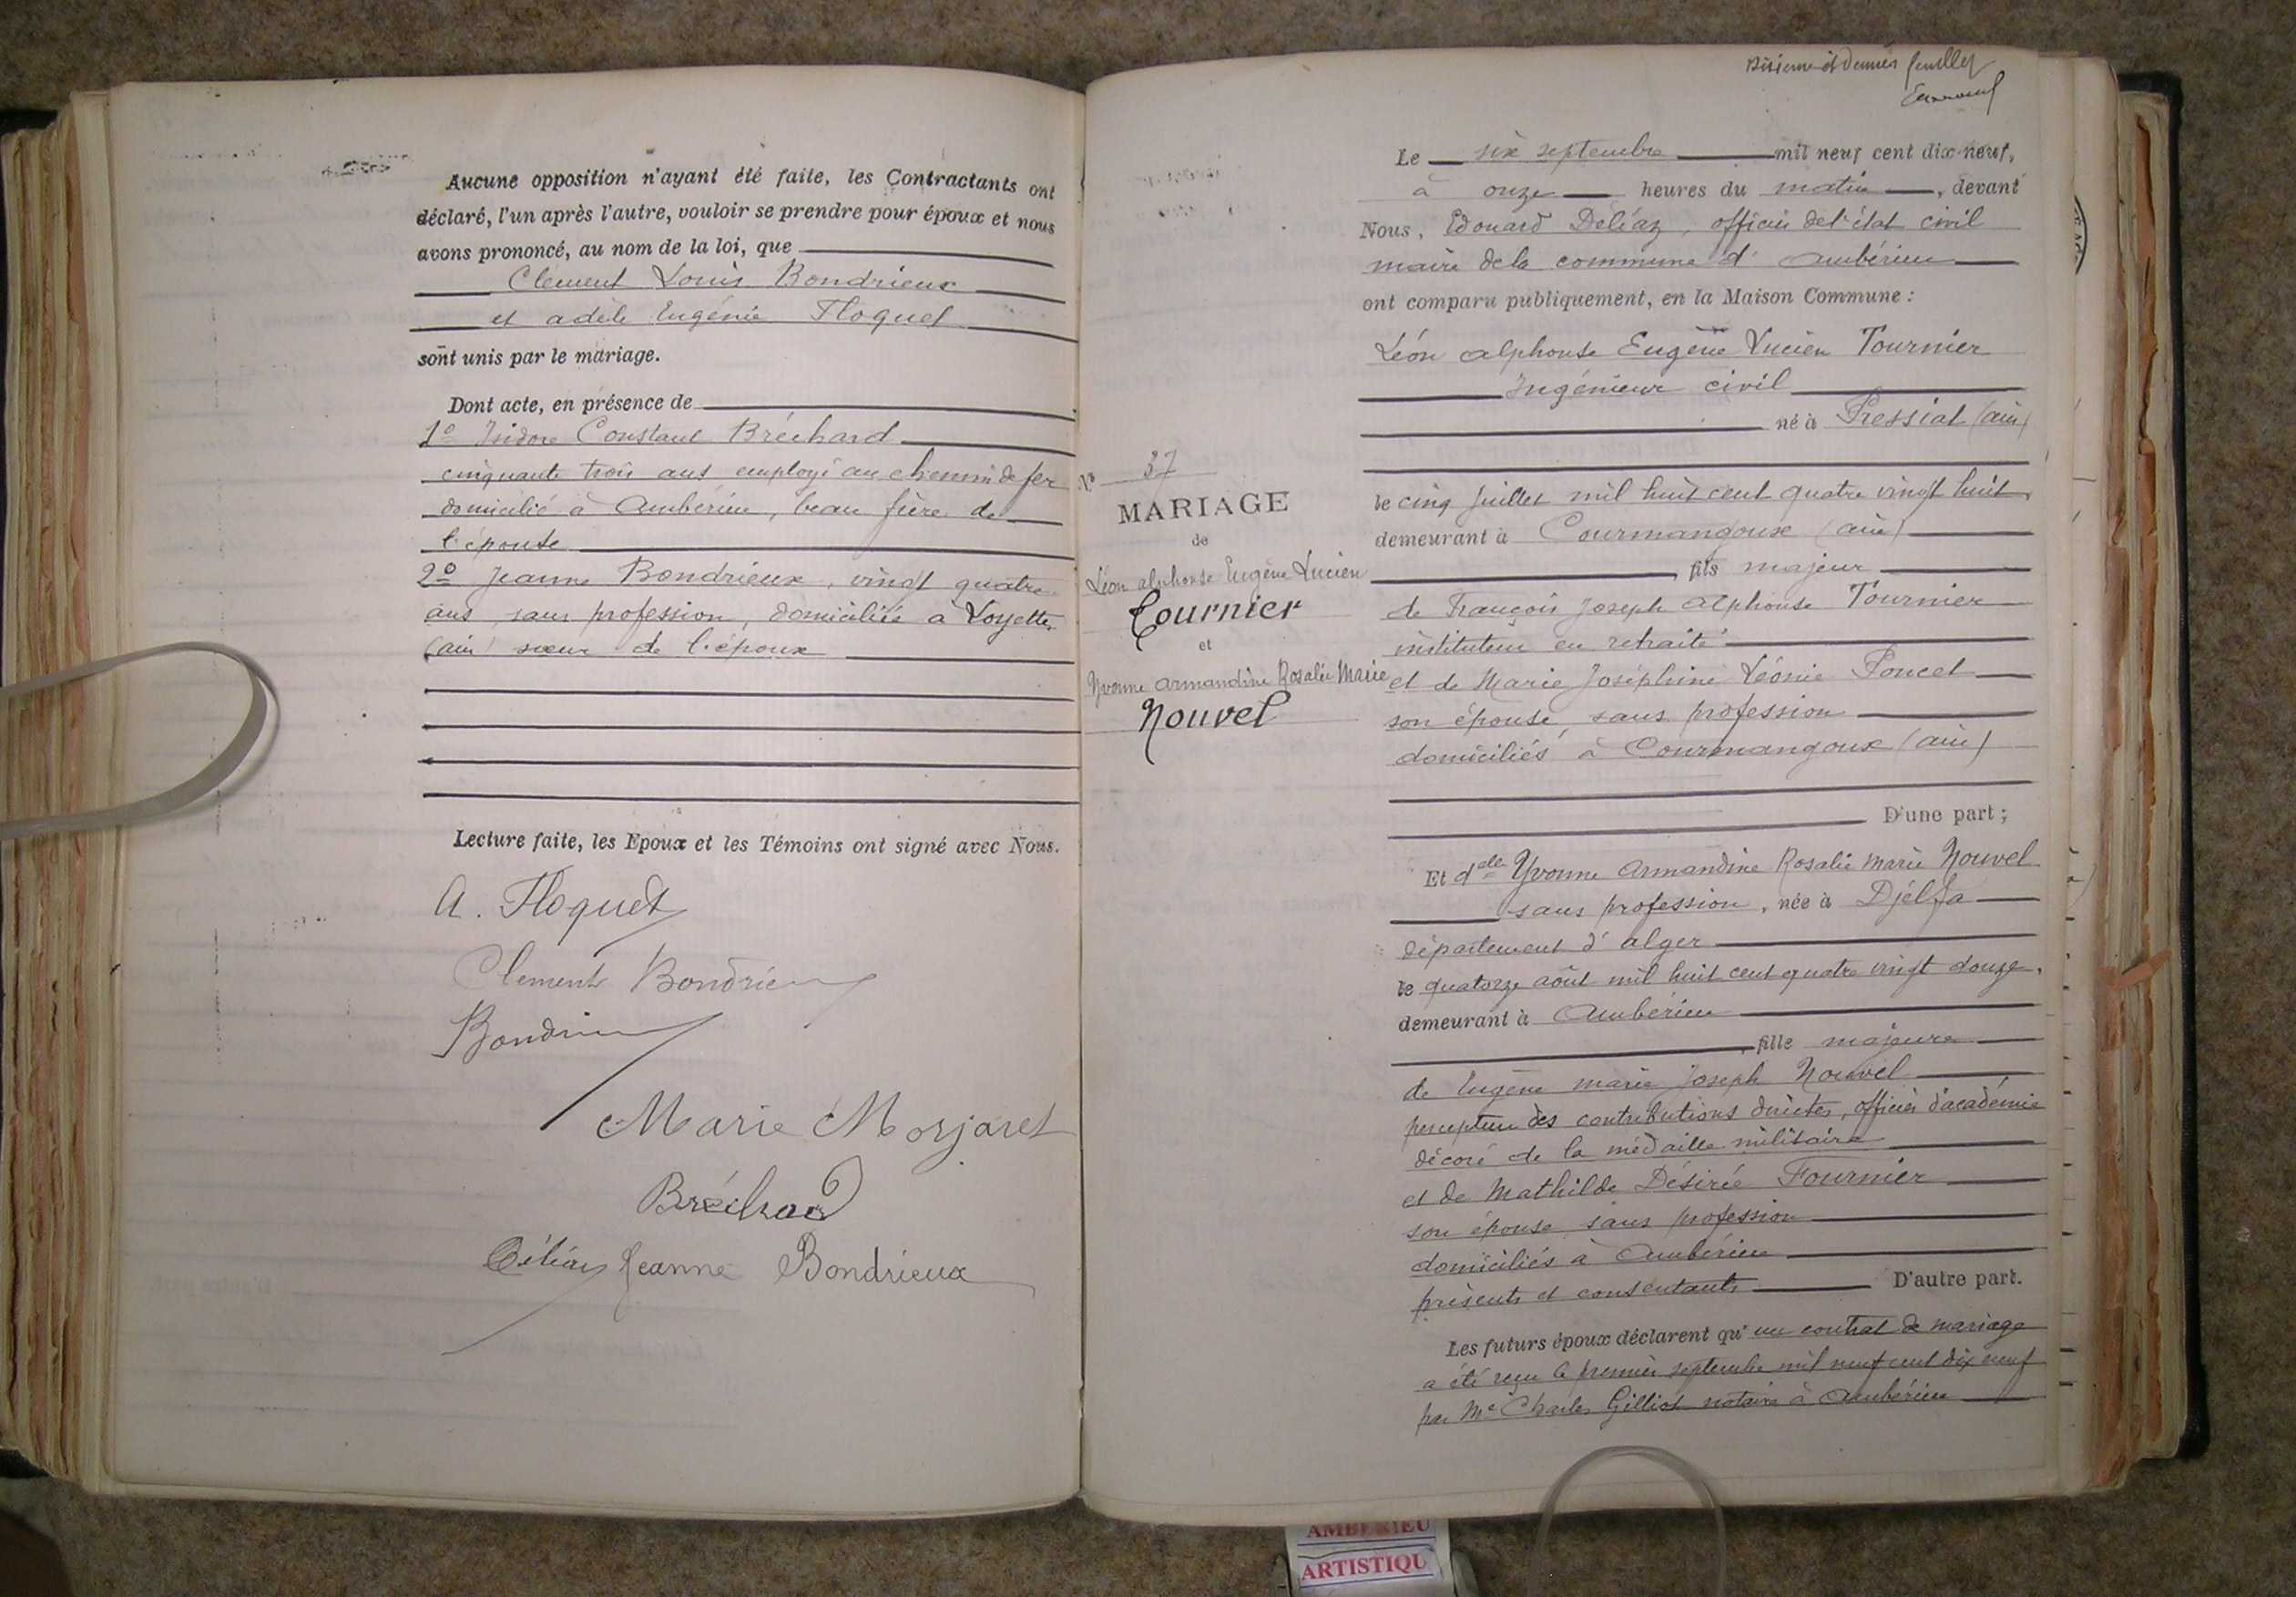 Aucune opposition n'ayant été faite, les Contractants ont
déclaré, l'un après l'autre, vouloir se prendre pour époux et nous
avons prononcé, au nom de la loi, que
Clement Louis Bondrieux
et adèle Eugénie Floquet
sont unis par le mariage.
Dont acte, en présence de
1º Isidore Constant Bréchard
cinquante trois ans employé au chemin de fer
domicilié à Ambérieu, beau frère de
l'épouse
2º Jeanne Bondrieux, vingt quatre
ans, sans profession, domiciliée à Loyettes
(ain) sœur de l'époux
Lecture faite, les Epoux et les Témoins ont signé avec Nous.
A. Floquet
Clement Bondrieux
Bondrieux
Marie Morjaret
Bréchard
Déliaz Jeanne Bondrieux
et dernier feuillet
Le six septembre mil neuf cent dix-neuf,
à onze heures du matin, devant
Nous, Edouard Déliaz, officier de l'état civil
maire de la commune d'Ambérieu
ont comparu publiquement, en la Maison Commune :
Léon alphonse Eugène Lucien Tournier
Ingénieur civil
né à Pressiat (ain)
le cinq Juillet mil huit cent quatre vingt huit,
demeurant à Courmangoux (ain)
, fils majeur
de François Joseph Alphonse Tournier
instituteur en retraite
et de Marie Joséphine Léonie Poncet
son épouse, sans profession
domiciliés à Courmangoux (ain)
D'une part ;
Nº 37
MARIAGE
de
Léon alphonse Eugène Lucien
Tournier
et
Yvonne armandine Rosalie Marie
Nouvel
Et delle Yvonne Armandine Rosalie Marie Nouvel
sans profession, née à Djelfa
département d'alger
le quatorze août mil huit cent quatre vingt douze,
demeurant à Ambérieu
, fille majeure
de Eugène marie Joseph Nouvel
percepteur des contributions directes, officier d'académie
décoré de la médaille militaire
et de Mathilde Désirée Fournier
son épouse sans profession
domiciliés à Ambérieu
présents et consentants D'autre part.
Les futurs époux déclarent qu'un contrat de mariage
a été reçu le premier septembre mil neuf cent dix neuf
par Me Charles Gilliot notaire à Ambérieu
AMBERIEU
ARTISTIQU